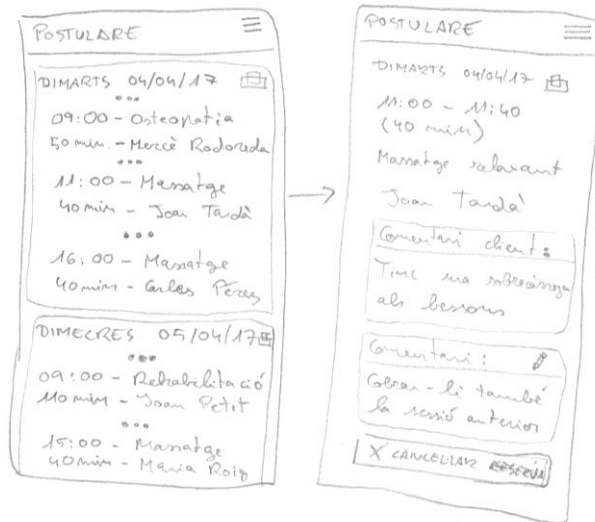 POSTULARE
DIMARTS 04/04/17
09:00 - Osteopatia
50 min. - Mercè Rodoreda
11:00 - Massatge
40 min - Joan Tardà
16:00 - Massatge
40 min - Carlos Pérez
DIMECRES 05/04/17
09:00 - Rehabilitació
110 min - Joan Petit
15:00 - Massatge
40 min - Maria Roig
POSTULARE
DIMARTS 04/04/17
11:00 - 11:40
(40 min)
Massatge relaxant
Joan Tardà
Comentari client:
Tinc una sobrecàrrega
als bessons
Comentari:
Cobrar-li també
la sessió anterior
X CANCEL·LAR RESERVA